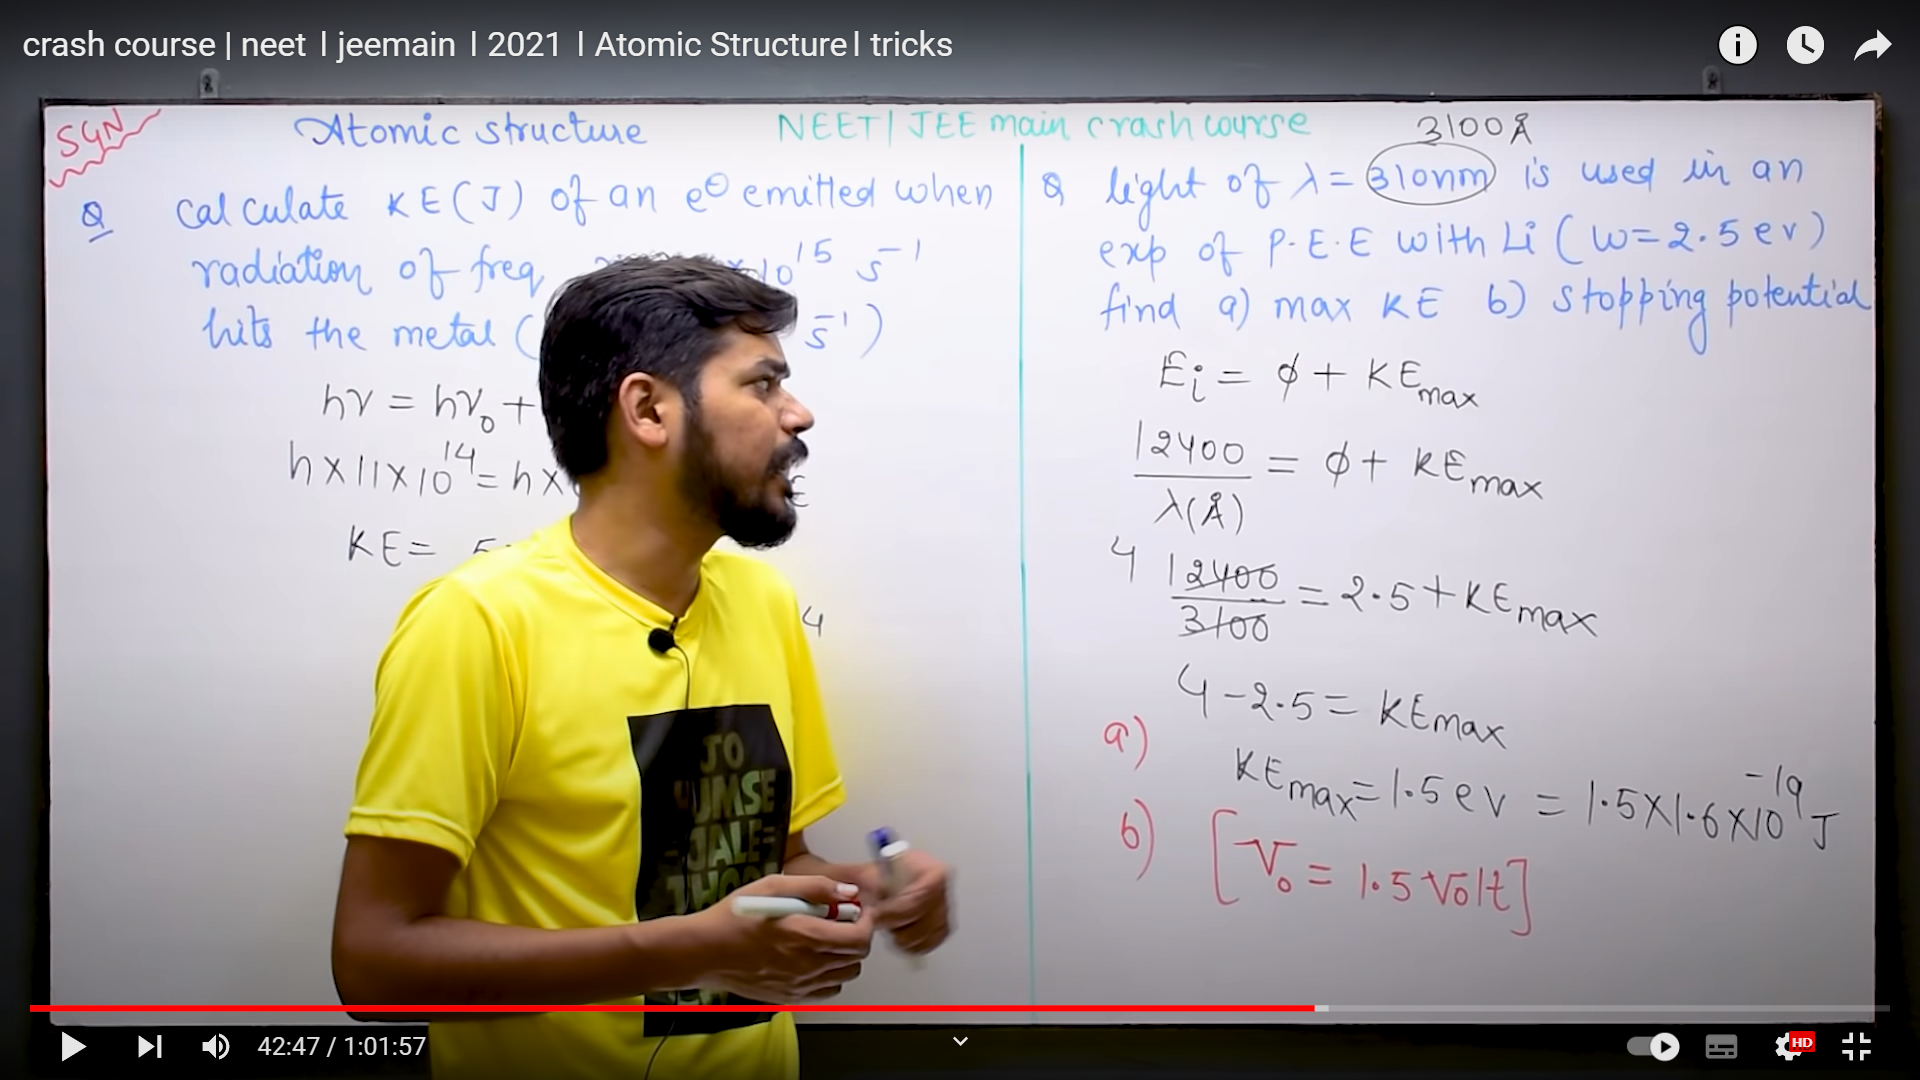 crash course | neet l jeemain l 2021 l Atomic Structure l tricks
SGN
Atomic structure
NEET / JEE main crash course
Q calculate KE(J) of an e⊖ emitted when
radiation of freq 10¹⁵ s⁻¹
hits the metal ( s⁻¹)
hν = hν₀ +
h×11×10¹⁴ = h×
KE =
4
3100Å
Q light of λ = 310nm is used in an
exp of P.E.E with Li (w=2.5 ev)
find a) max KE b) stopping potential
Ei = φ + KEmax
12400/λ(Å) = φ + KEmax
4 12400/3100 = 2.5 + KEmax
4 - 2.5 = KEmax
a)
KEmax = 1.5 ev = 1.5×1.6×10⁻¹⁹ J
b) [V₀ = 1.5 Volt]
JO
TUMSE
JALE
42:47 / 1:01:57
HD